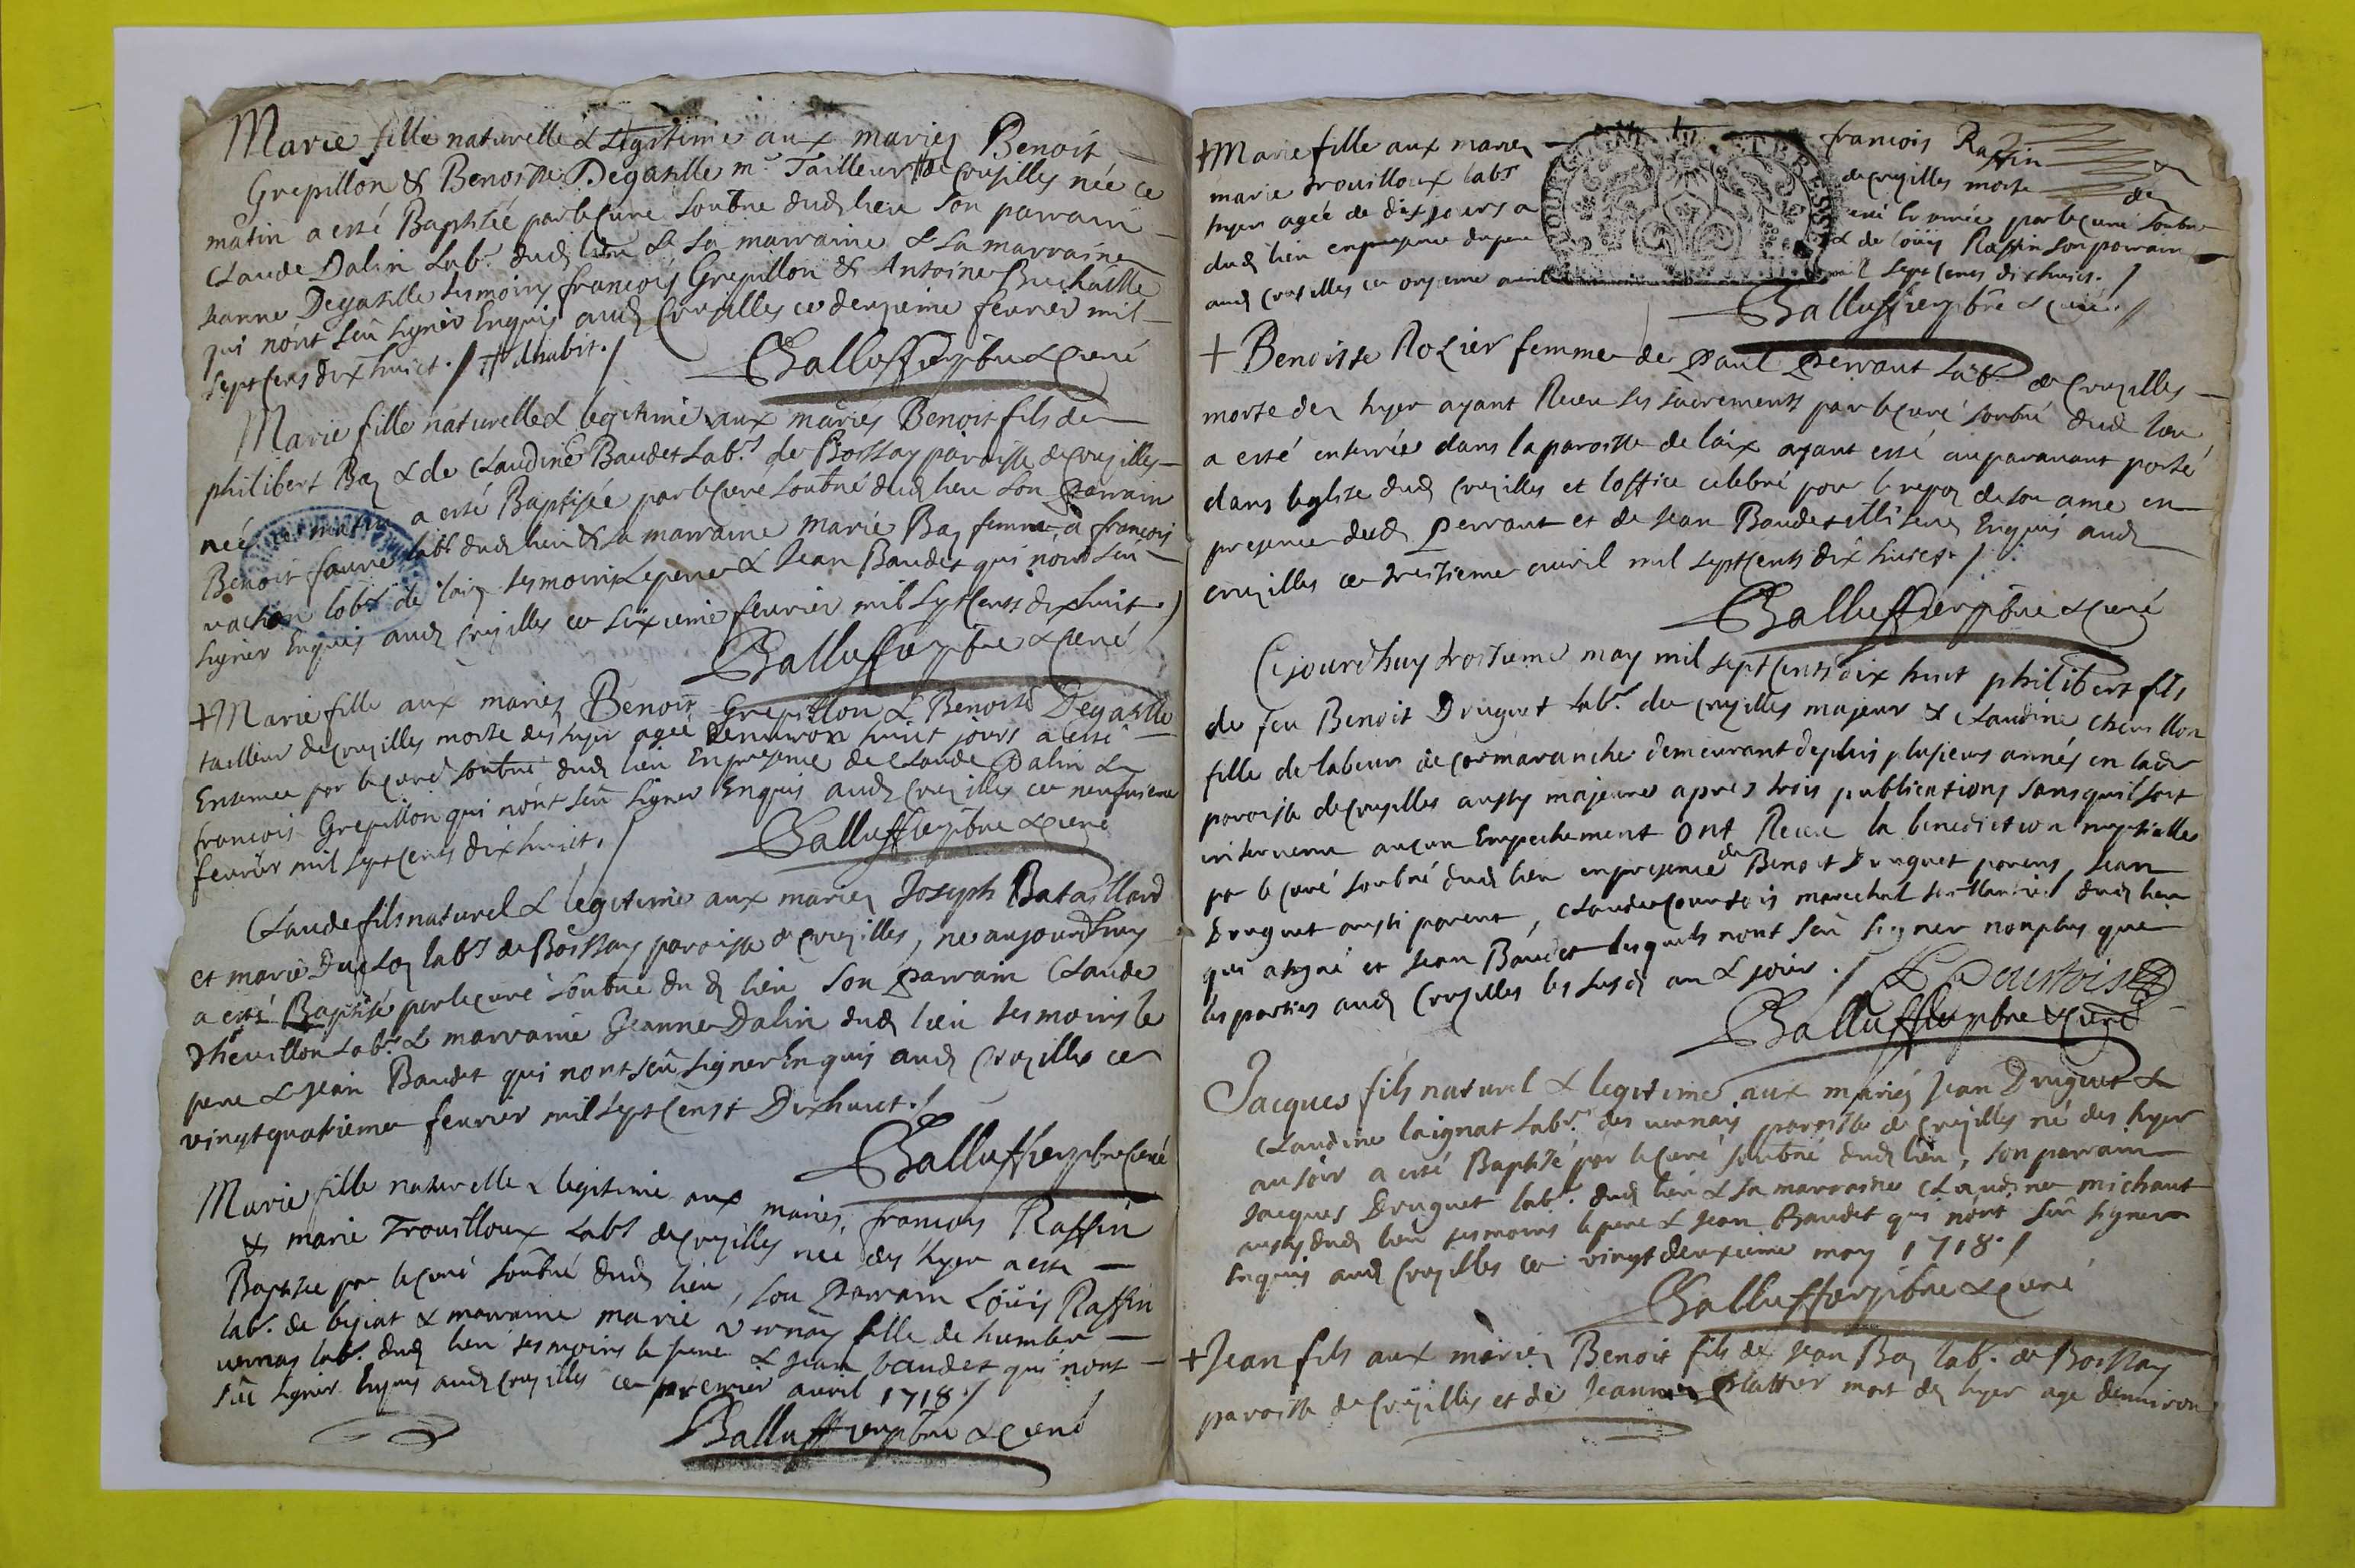 Marie fille naturelle & Legitime aux mariez Benoit
Grepillon & Benoiste Degaslle me Tailleur # de Cruzilles née ce
matin a esté Baptisée par le Curé soubné dudt lieu son parrain
Claude Dalin Labr dudt lieu & sa marraine & la marraine
Jeanne Degaslle tesmoins francois Grepillon & Antoine Buchaille
qui n'ont seû signer Enquis audt Cruzilles ce deuxieme fevrier mil
sept Cens dix huict ./ # dhabit ./
Balluffier pbre & Curé
Marie fille naturelle & legitime aux mariés Benoit fils de
philibert Bay & de Claudine Baudet Labrs de Boissay paroisse de Cruzilles
née ce matin a esté Baptisée par le Curé soubné dudt lieu son parrain
Benoit faure labr dudt lieu & sa marraine marie Bay femme a francois
vachon labr de laiz tesmoins le pere & Jean Baudet qui n'ont seû
signer Enquis audt Cruzilles ce sixieme fevrier mil sept Cents dix huit ./
Balluffier pbre & Curé
+ Marie fille aux mariez Benoit Grepillon & Benoiste Degaslle
tailleur de Cruzilles morte des hyer agée denviron huict jours a esté
Enterrée par le Curé soubné dudt lieu En presence de Claude Dalin &
francois Grepillon qui n'ont seû signer Enquis audt Cruzilles ce neufvieme
fevrier mil sept Cents dix huict ./
Balluffier pbre & Curé
Claude fils naturel & legitime aux mariez Joseph Bataillard
et marie Duclos labrs de Boissay paroisse de Cruzilles, né aujourdhuy
a esté Baptisé par le Curé soubné dudt lieu son parrain Claude
Thevillon Labr & marraine Jeanne Dalin dudt lieu tesmoins le
pere & Jean Baudet qui n'ont seû signer Enquis audt Cruzilles ce
vingt quatrieme fevrier mil sept Cents Dix huict ./
Balluffier pbre Curé
Marie fille naturelle & legitime aux mariés francois Raffin
& marie Trouilloux Labrs de Cruzilles née des hyer a esté
Baptisée par le Curé soubné dudt lieu, son parrain Loüis Raffin
labr de biziat & marraine marie vernay fille de humber
vernay labr dudt lieu tesmoins le pere & Jean baudet qui n'ont
sûe signer Enquis audt Cruzilles ce premier avril 1718 ./
Balluffier pbre & Curé
+ Marie fille aux mariez francois Raffin &
marie trouilloux labrs de Cruzilles morte de
hyer agée de dix jours a esté Enterrée par le Curé soubné
dudt lieu en presence du pere & de loüis Raffin son parrain
audt Cruzilles ce onzieme avril mil sept Cens dix huict ./
Balluffier pbre & Curé ./
+ Benoiste Rozier femme de Paul Perraut Labr de Cruzilles
morte des hyer ayant Receu les sacrements par le Curé soubné dudt lieu
a esté enterrée dans la paroisse de laix ayant esté auparavant porté
dans leglise dudt Cruzilles et loffice celebré pour le repos de son ame en
presence dudt Perraut et de Jean Baudet illiterez Enquis audt
cruzilles ce treizieme avril mil sept Cents dix huict ./
Balluffier pbre & Curé
Ce jourdhuy troisieme may mil sept Cents dix huit philibert fils
de feu Benoit Druguet labr de Cruzilles majeur & Claudine Chevillon
fille de labeur de Cormaranche demeurant depuis plusieurs annés en ladt
paroisse de Cruzilles aussy majeure apres trois publications sans quil soit
intervenu aucun Empechement ont Receu la benediction nuptialle
par le Curé soubné dudt lieu en presence de Benoit Druguet parent, Jean
Druguet aussi parent, Claude Courtois marechal dudt lieu
qui a signé et Jean Baudet lesquels nont seû signer nonplus que
les parties audt Cruzilles les susdt an & jour ./ C Courtois
Balluffier pbre & Curé
Jacques fils naturel & legitime aux mariés Jean Druguet &
Claudine laignat Labrs des vernais paroisse de Cruzilles né des hyer
au soir a esté Baptisé par le Curé soubné dudt lieu, son parrain
Jacques Druguet labr dudt lieu & sa marraine Claudine michaut
aussy dudt lieu tesmoins le pere & Jean Baudet qui n'ont seû signer
Enquis audt Cruzilles ce vingt deuxieme may 1718 ./
Balluffier pbre & Curé
+ Jean fils aux mariez Benoit fils de Jean Bay labr de Boissay
paroisse de Cruzilles et de Jeanne mort des hyer age denviron